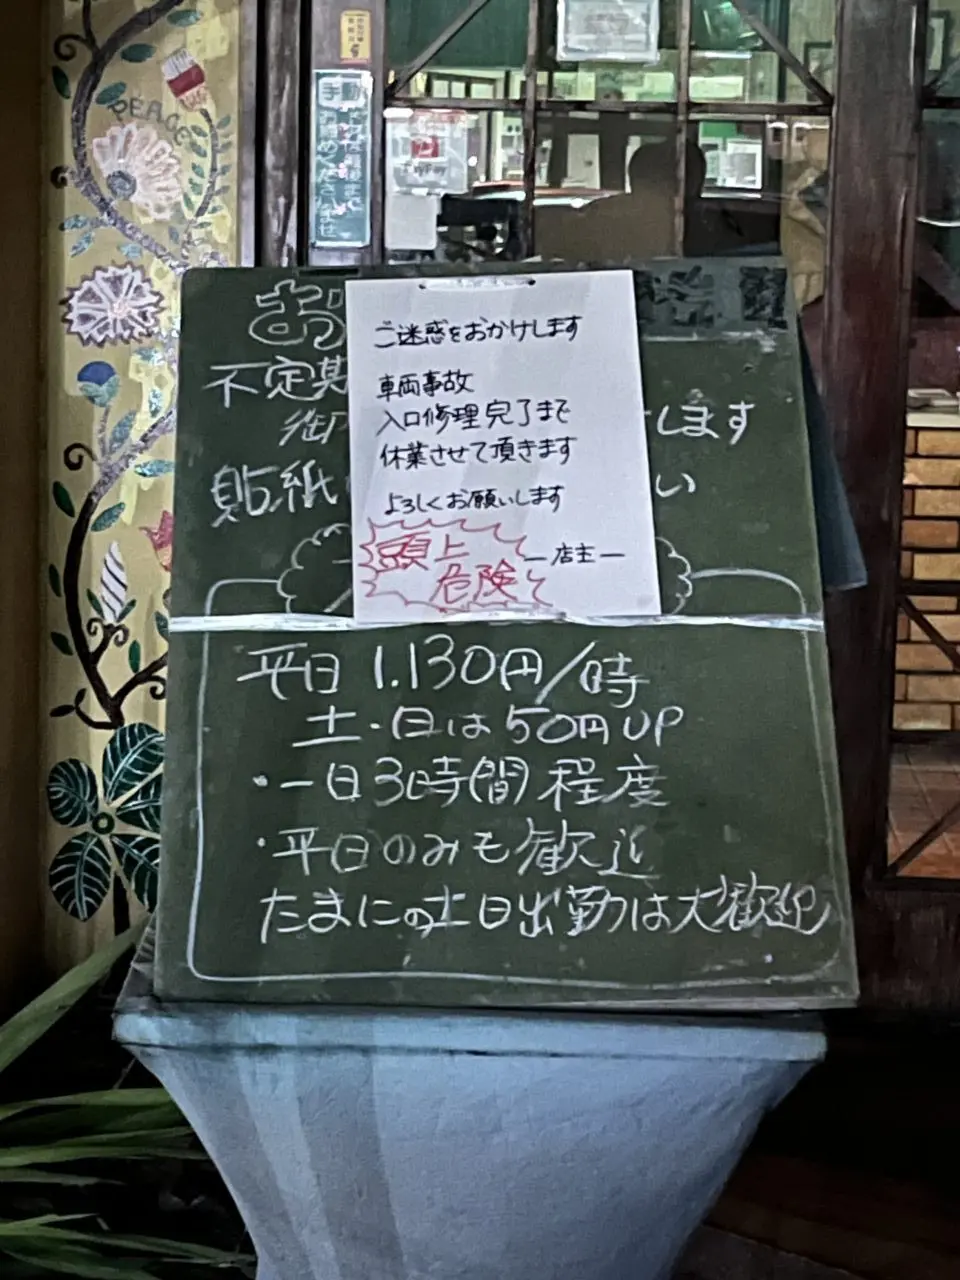 PEACE
手動
PayPay
ご迷惑をおかけします
車両事故
入口修理完了まで
休業させて頂きます
よろしくお願いします
頭上
危険
―店主―
不定期
します
貼紙
い
平日 1.130円/時
土・日は50円UP
・一日3時間程度
・平日のみも歓迎
たまにの土日出勤は大歓迎